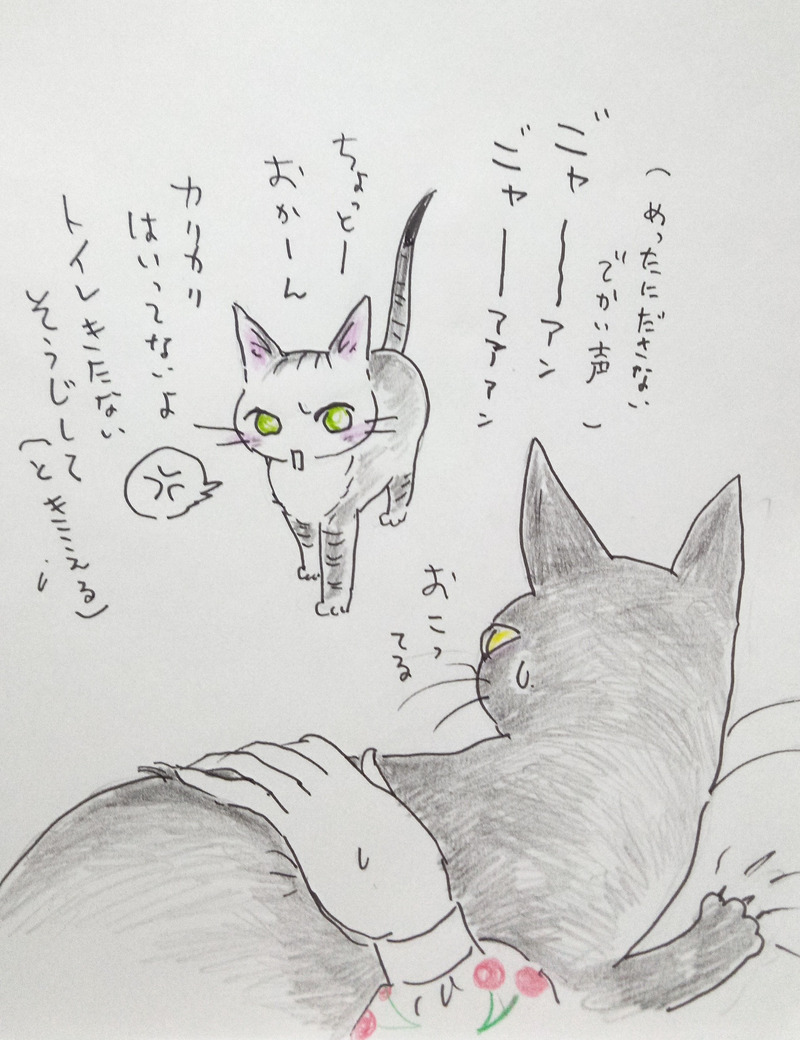 (めったにださない
でかい声)
ニ゛ャーーアン
ニ゛ャーーアアアン
ちょっとー
おかーん
カリカリ
はいってないよ
トイレきたない
そうじして
(ときこえる)
おこっ
てる